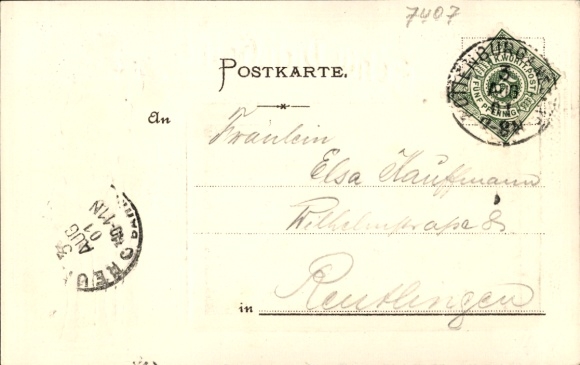 7407
POSTKARTE.
An
Fräulein
Elsa Kauffmann
Wilhelmstraße 8
in Reutlingen
K. WÜRTT. POST
FÜNF PFENNIG
3
AUG
01
3
AUG
01
10-11N